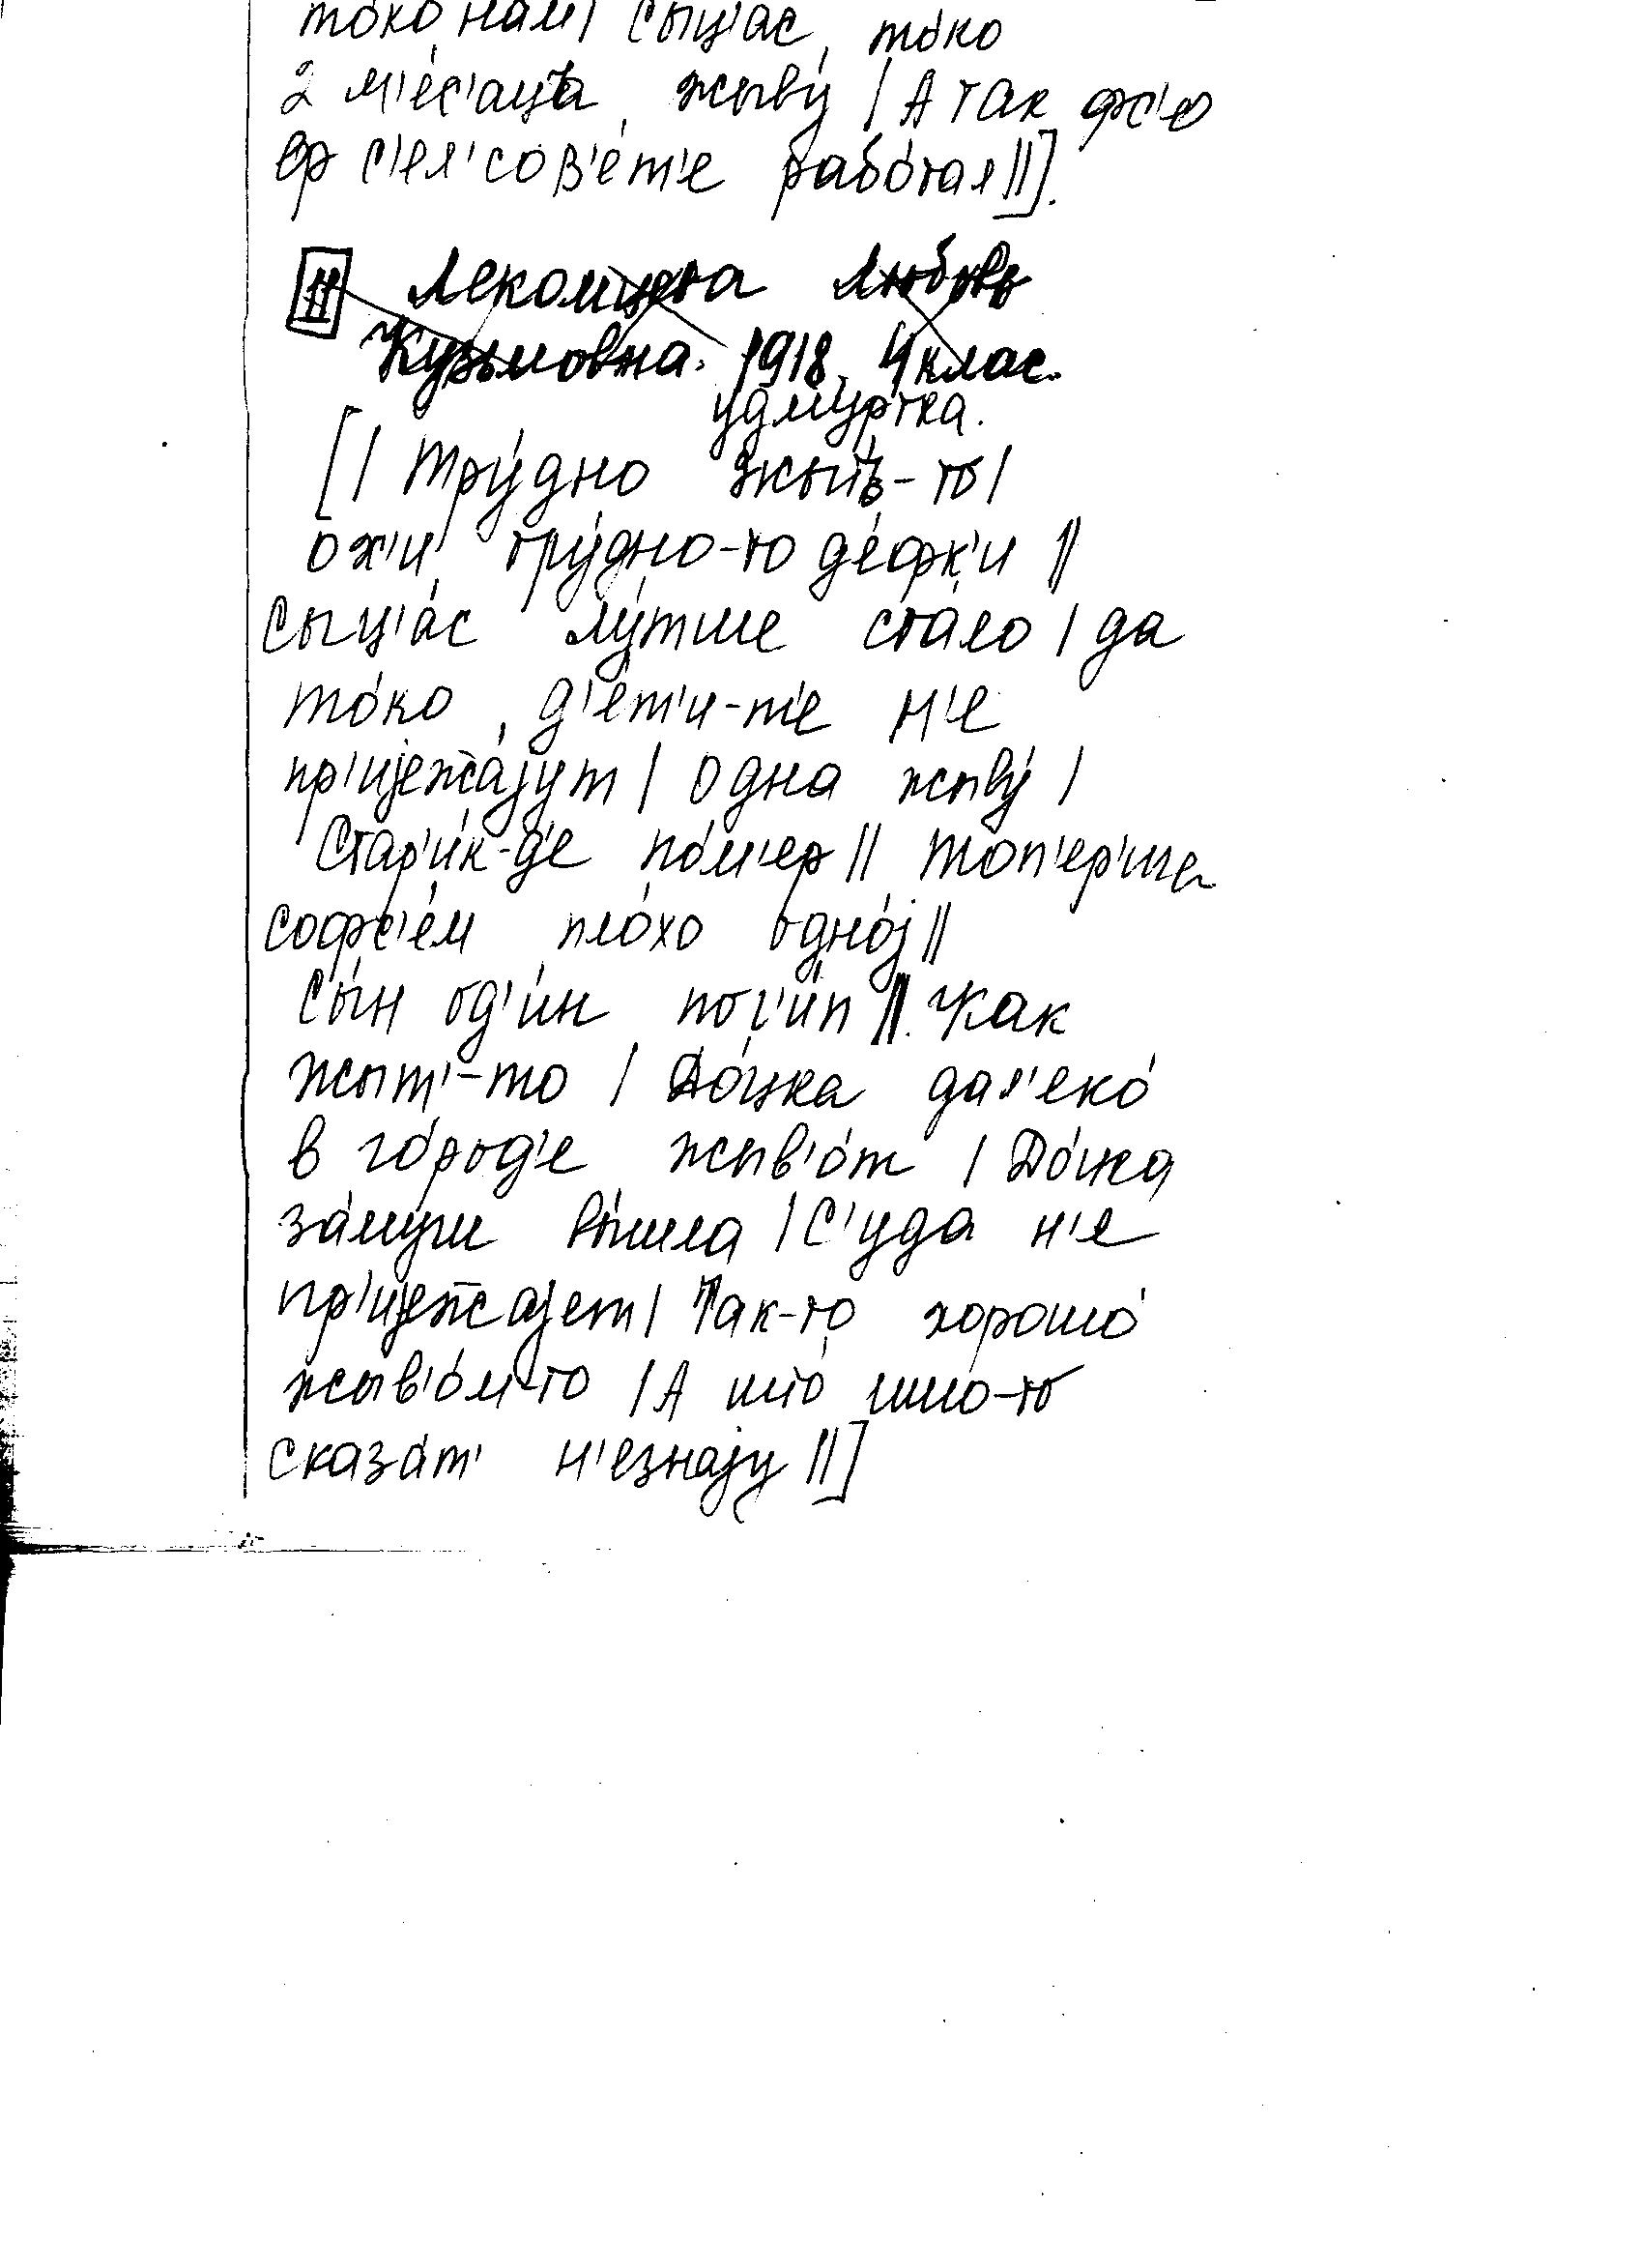 то́ко нам| сыц'ас то́ко
2 м'е́с'аца жыву́ | А так фс'о
ф с'ел'сов'е́т'е рабо́тая ||].
11 Лекомцева Любовь
Кузьмовна. 1918. 4 клас.
удмуртка.
[| тру́дно жыт'-то|
ох'и тру́дно-то де́фк'и ||
Сыц'а́с лу́тше ста́ло | да
то́ко д'е́т'и-т'е н'е
пр'ијежа́јут | одна жыву́ |
Стар'и́к-д'е по́м'ер || топ'ер'иче
софс'е́м пло́хо одно́ј ||
Сы́н од'и́н пог'и́п ||. Как
жыт'-то | До́цка дал'еко́
в го́род'е жыв'о́т | До́цка
за́муш вы́шла | С'уда н'е
пр'ијежајет | Так-то хорошо́
жыв'о́м-то | А што́ што-то
сказа́т' н'езнају ||]